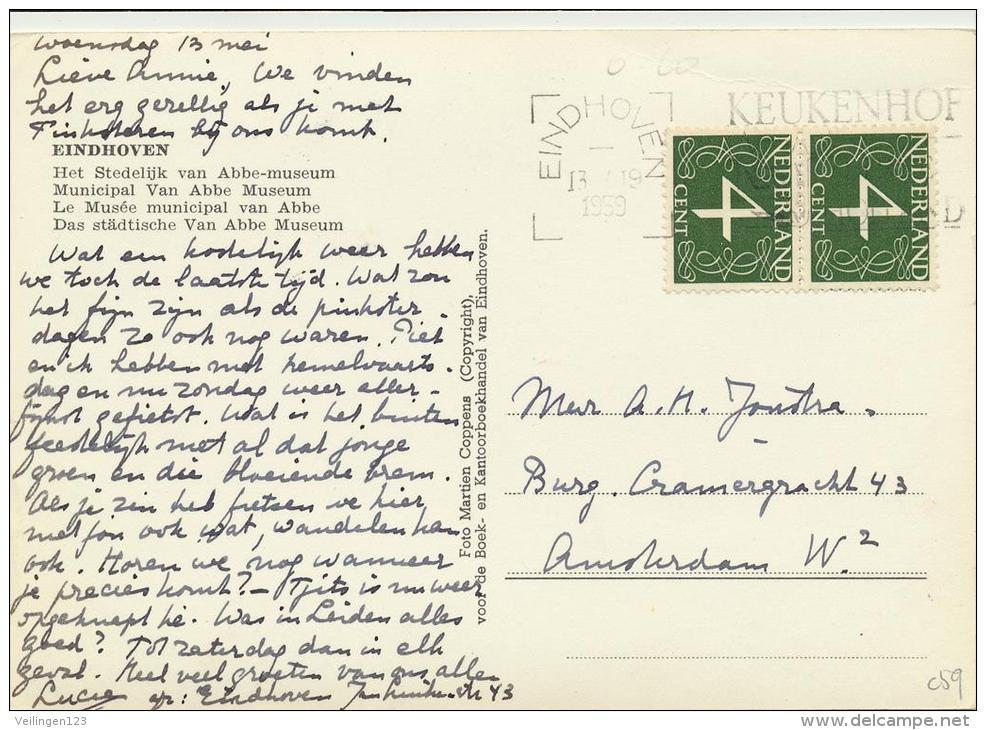 woensdag 13 mei
Lieve Annie, We vinden
het erg gezellig als je met
Pinksteren bij ons komt.
EINDHOVEN
Het Stedelijk van Abbe-museum
Municipal Van Abbe Museum
Le Musée municipal van Abbe
Das städtische Van Abbe Museum
Wat een kostelijk weer hebben
we toch de laatste tijd. Wat zou
het fijn zijn als de pinkster-
dagen zo ook nog waren. Piet
en ik hebben met hemelvaarts-
dag en nu zondag weer aller-
fijnst gefietst. Wat is het buiten
feestelijk met al dat jonge
groen en die bloeiende brem.
Als je zin heb fietsen we hier
met jou ook wat, wandelen kan
ook. Horen we nog wanneer
je precies komt? - Tjits is nu weer
opgeknapt hè. Was in Leiden alles
goed? Tot zaterdag dan in elk
geval. Heel veel groeten van ons allen
Lucie
Eindhoven 43
Foto Martien Coppens (Copyright),
voor de Boek- en Kantoorboekhandel van Eindhoven.
EINDHOVEN
13 19
1959
KEUKENHOF
NEDERLAND
4
CENT
NEDERLAND
4
CENT
Mevr A. H. Joustra.
Burg. Cramergracht 43
Amsterdam W.2
c59
Veilingen123